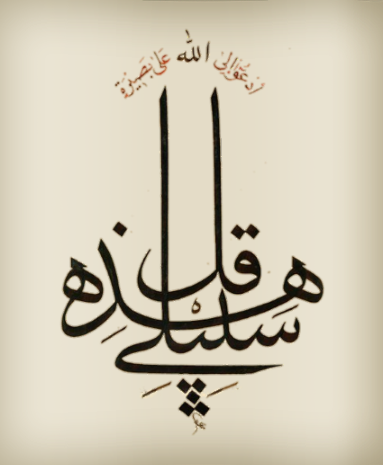 قل هذه سبيلي
أدعو إلى الله على بصيرة